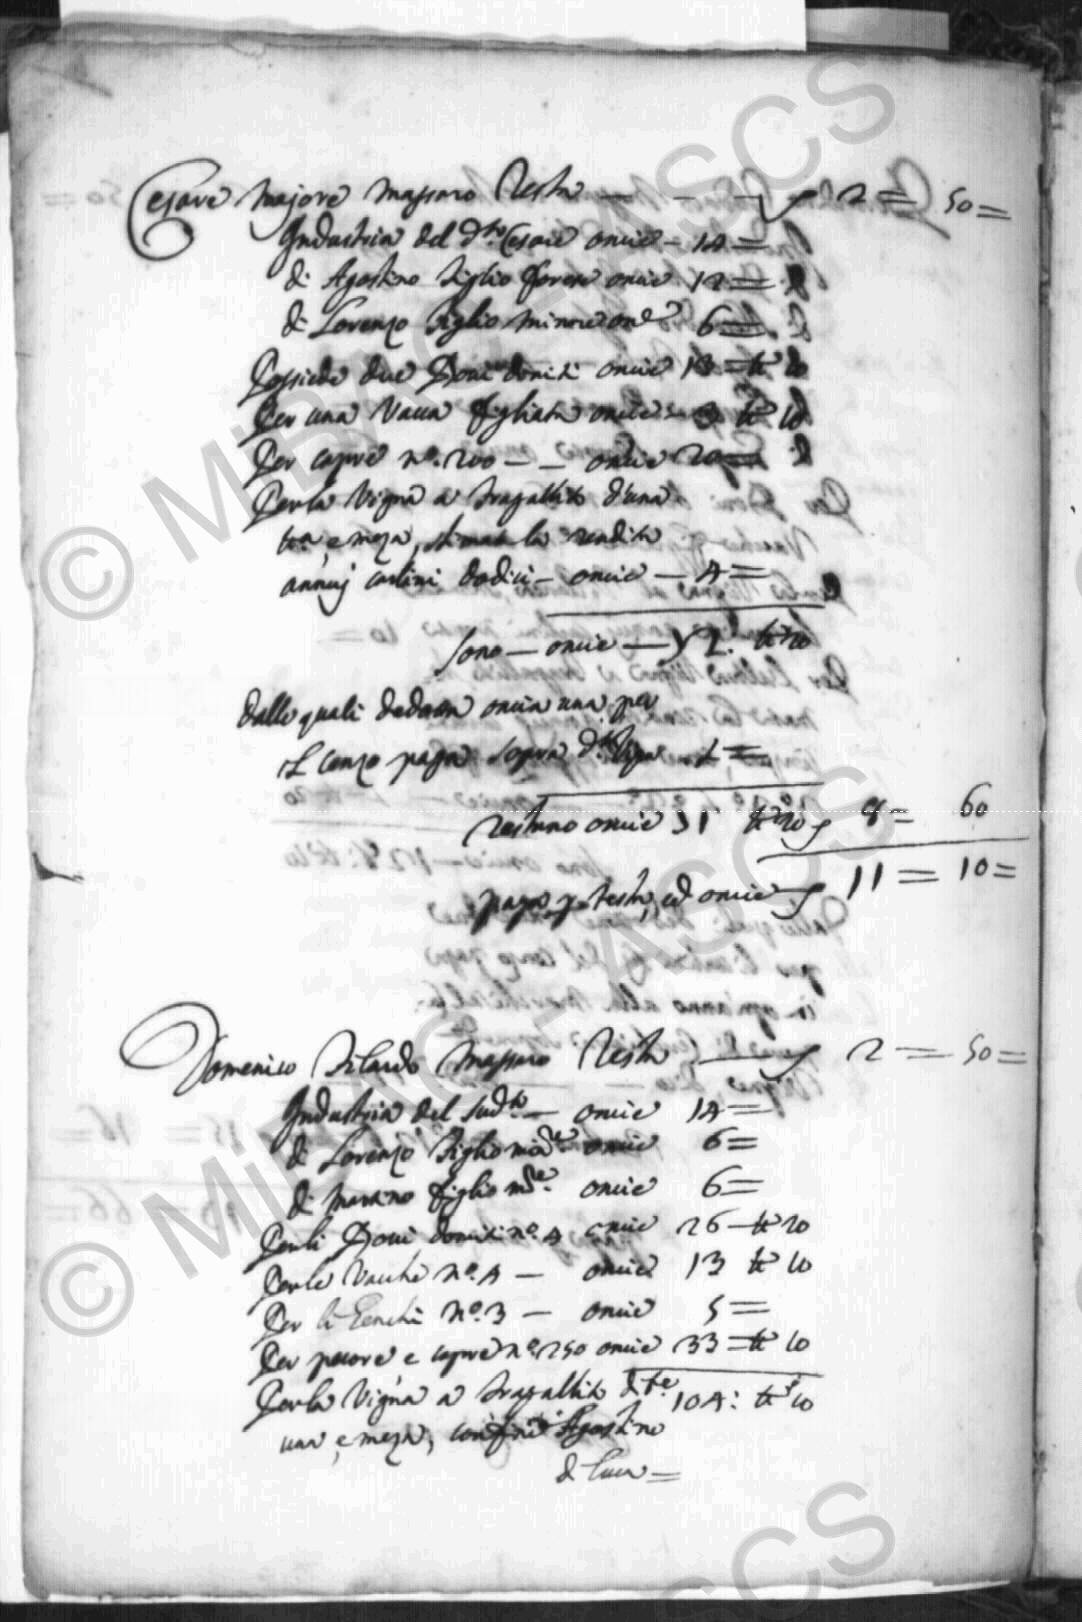 Cesare Majore Massaro Testa — — — 2 = 50 =
Industria del d.to Cesare oncie — 14 =
di Agostino figlio oncie 12 =
di Lorenzo figlio minore on.e 6 =
Possiede due Bovi domiti oncie 13 = tt 10
Per una Vacca figliata oncie 3 tt 10
Per capre n.o 200 — — oncie 20 =
Per la Vigna a d'una
e meza, stimata la rendita
annuj carlini dodici — oncie — 4 =
sono — oncie — 72. tt 10
dalle quali deducon oncia una per
il Cenzo paga sopra d.ta Vigna 1 =
restano oncie 71 tt 10 8 = 60
paga p testa, ed oncie 11 = 10 =
Domenico Massaro Testa — 2 = 50 =
Industria del sud.to — oncie 14 =
di Lorenzo figlio oncie 6 =
di figlio oncie 6 =
Per li Bovi domiti n.o 4 oncie 26 — tt 20
Per le Vacche n.o 4 — oncie 13 tt 10
Per li Genchi n.o 3 — oncie 5 =
Per pecore e capre n.o 250 oncie 33 = tt 10
Per la Vigna a 104: tt 10
una, e meza, confine Agostino
di Luca =
© MiBAC - ASCS
© MiBAC - ASCS